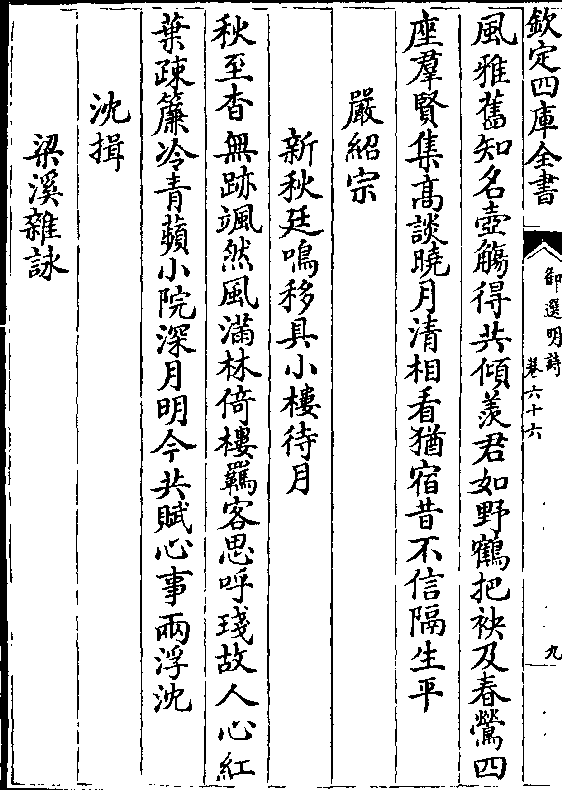 欽定四庫全書
御選明詩
卷六十六
九
風雅舊知名壺觴得共傾羨君如野鶴把袂及春鶯四
座羣賢集高談曉月清相看猶宿昔不信隔生平
嚴紹宗
新秋廷鳴移具小樓待月
秋至杳無跡颯然風滿林倚樓羈客思呼琖故人心紅
葉疎簾冷青蘋小院深月明今共賦心事兩浮沈
沈揖
梁溪雜詠